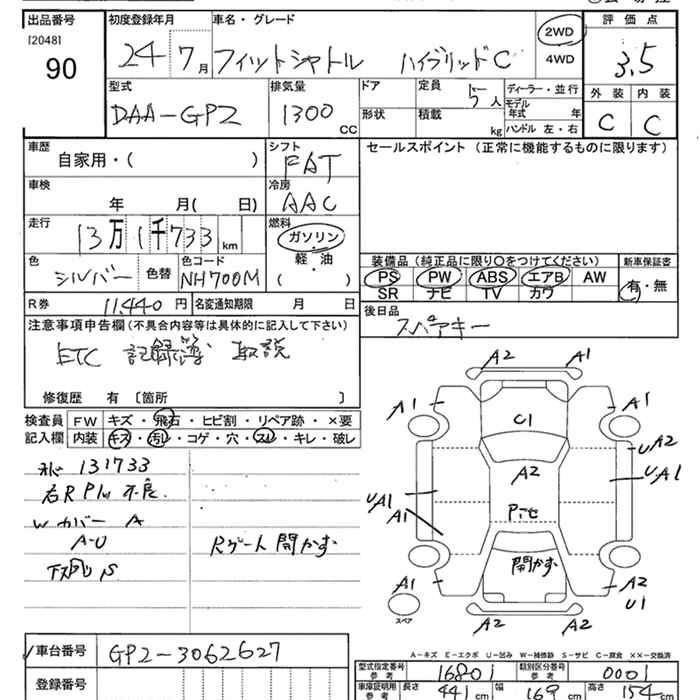 出品番号 初度登録年月 車名・グレード 評価点
[2048] 90 24 7月 フィットシャトル ハイブリッドC 2WD 4WD 3.5
型式 排気量 ドア 定員 5人 ディーラー・並行 外装 内装
DAA-GP2 1300 CC 形状 積載 kg モデル年式 年 ハンドル 左・右 C C
車歴 自家用・( ) シフト FAT セールスポイント (正常に機能するものに限ります)
車検 年 月( 日) 冷房 AAC
走行 13万1千733 km 燃料 ガソリン 軽・油 ( )
装備品 (純正品に限り○をつけてください) 新車保証書
色 シルバー 色替 色コード NH700M PS PW ABS エアB AW 有・無
SR ナビ TV カワ
R券 11,440円 名変通知期限 月 日 後日品
注意事項申告欄(不具合内容等は具体的に記入して下さい) スペアキー
ETC 記録簿 取説
修復歴 有 〔箇所 〕
検査員 FW キズ・飛石・ヒビ割・リペア跡・×要
記入欄 内装 キズ・汚れ・コゲ・穴・スレ・キレ・破レ
131733
右R P/W 不良
W カバー A
A-U Rゲート開かず
下廻りS
A2 A1
A1 C1 A1
A2 U A2
UA1 UA1
A1
開かず
A1 A2
U1
スペア A2 A2
A-キズ E-エクボ U-凹み W-補修跡 S-サビ C-腐食 XX-交換済
車台番号 GP2-3062627
型式指定番号 参考 16801 類別区分番号 参考 0001
登録番号
車庫証明用 参考 長さ 441cm 幅 169cm 高さ 154cm